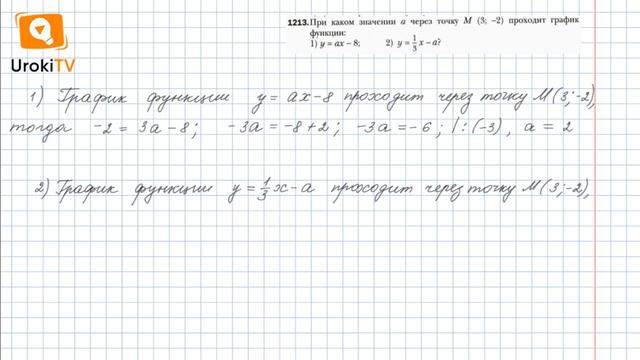 1213. При каком значении a через точку M (3; −2) проходит график
функции:
1) y = ax − 8; 2) y = 1/3 x − a?
UrokiTV
1) График функции y = ax − 8 проходит через точку M(3; −2),
тогда −2 = 3a − 8; −3a = −8 + 2; −3a = −6; | : (−3), a = 2
2) График функции y = 1/3 x − a проходит через точку M(3; −2),